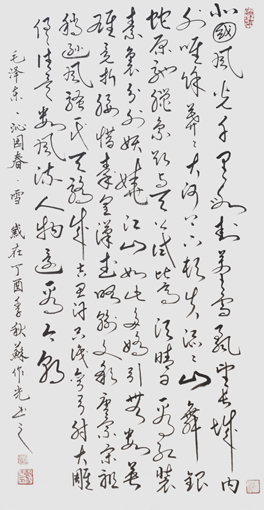 北國風光千里冰封萬里雪飄望長城内
外唯餘莽莽大河上下頓失滔滔山舞銀
蛇原馳蠟象欲與天公試比高須晴日看紅裝
素裹分外妖嬈江山如此多嬌引無數英
雄競折腰惜秦皇漢武略輸文采唐宗宋祖
稍遜風騷一代天驕成吉思汗只識彎弓射大雕
俱往矣數風流人物還看今朝
毛泽东·沁园春·雪 歲在丁酉季秋蘇作光书之